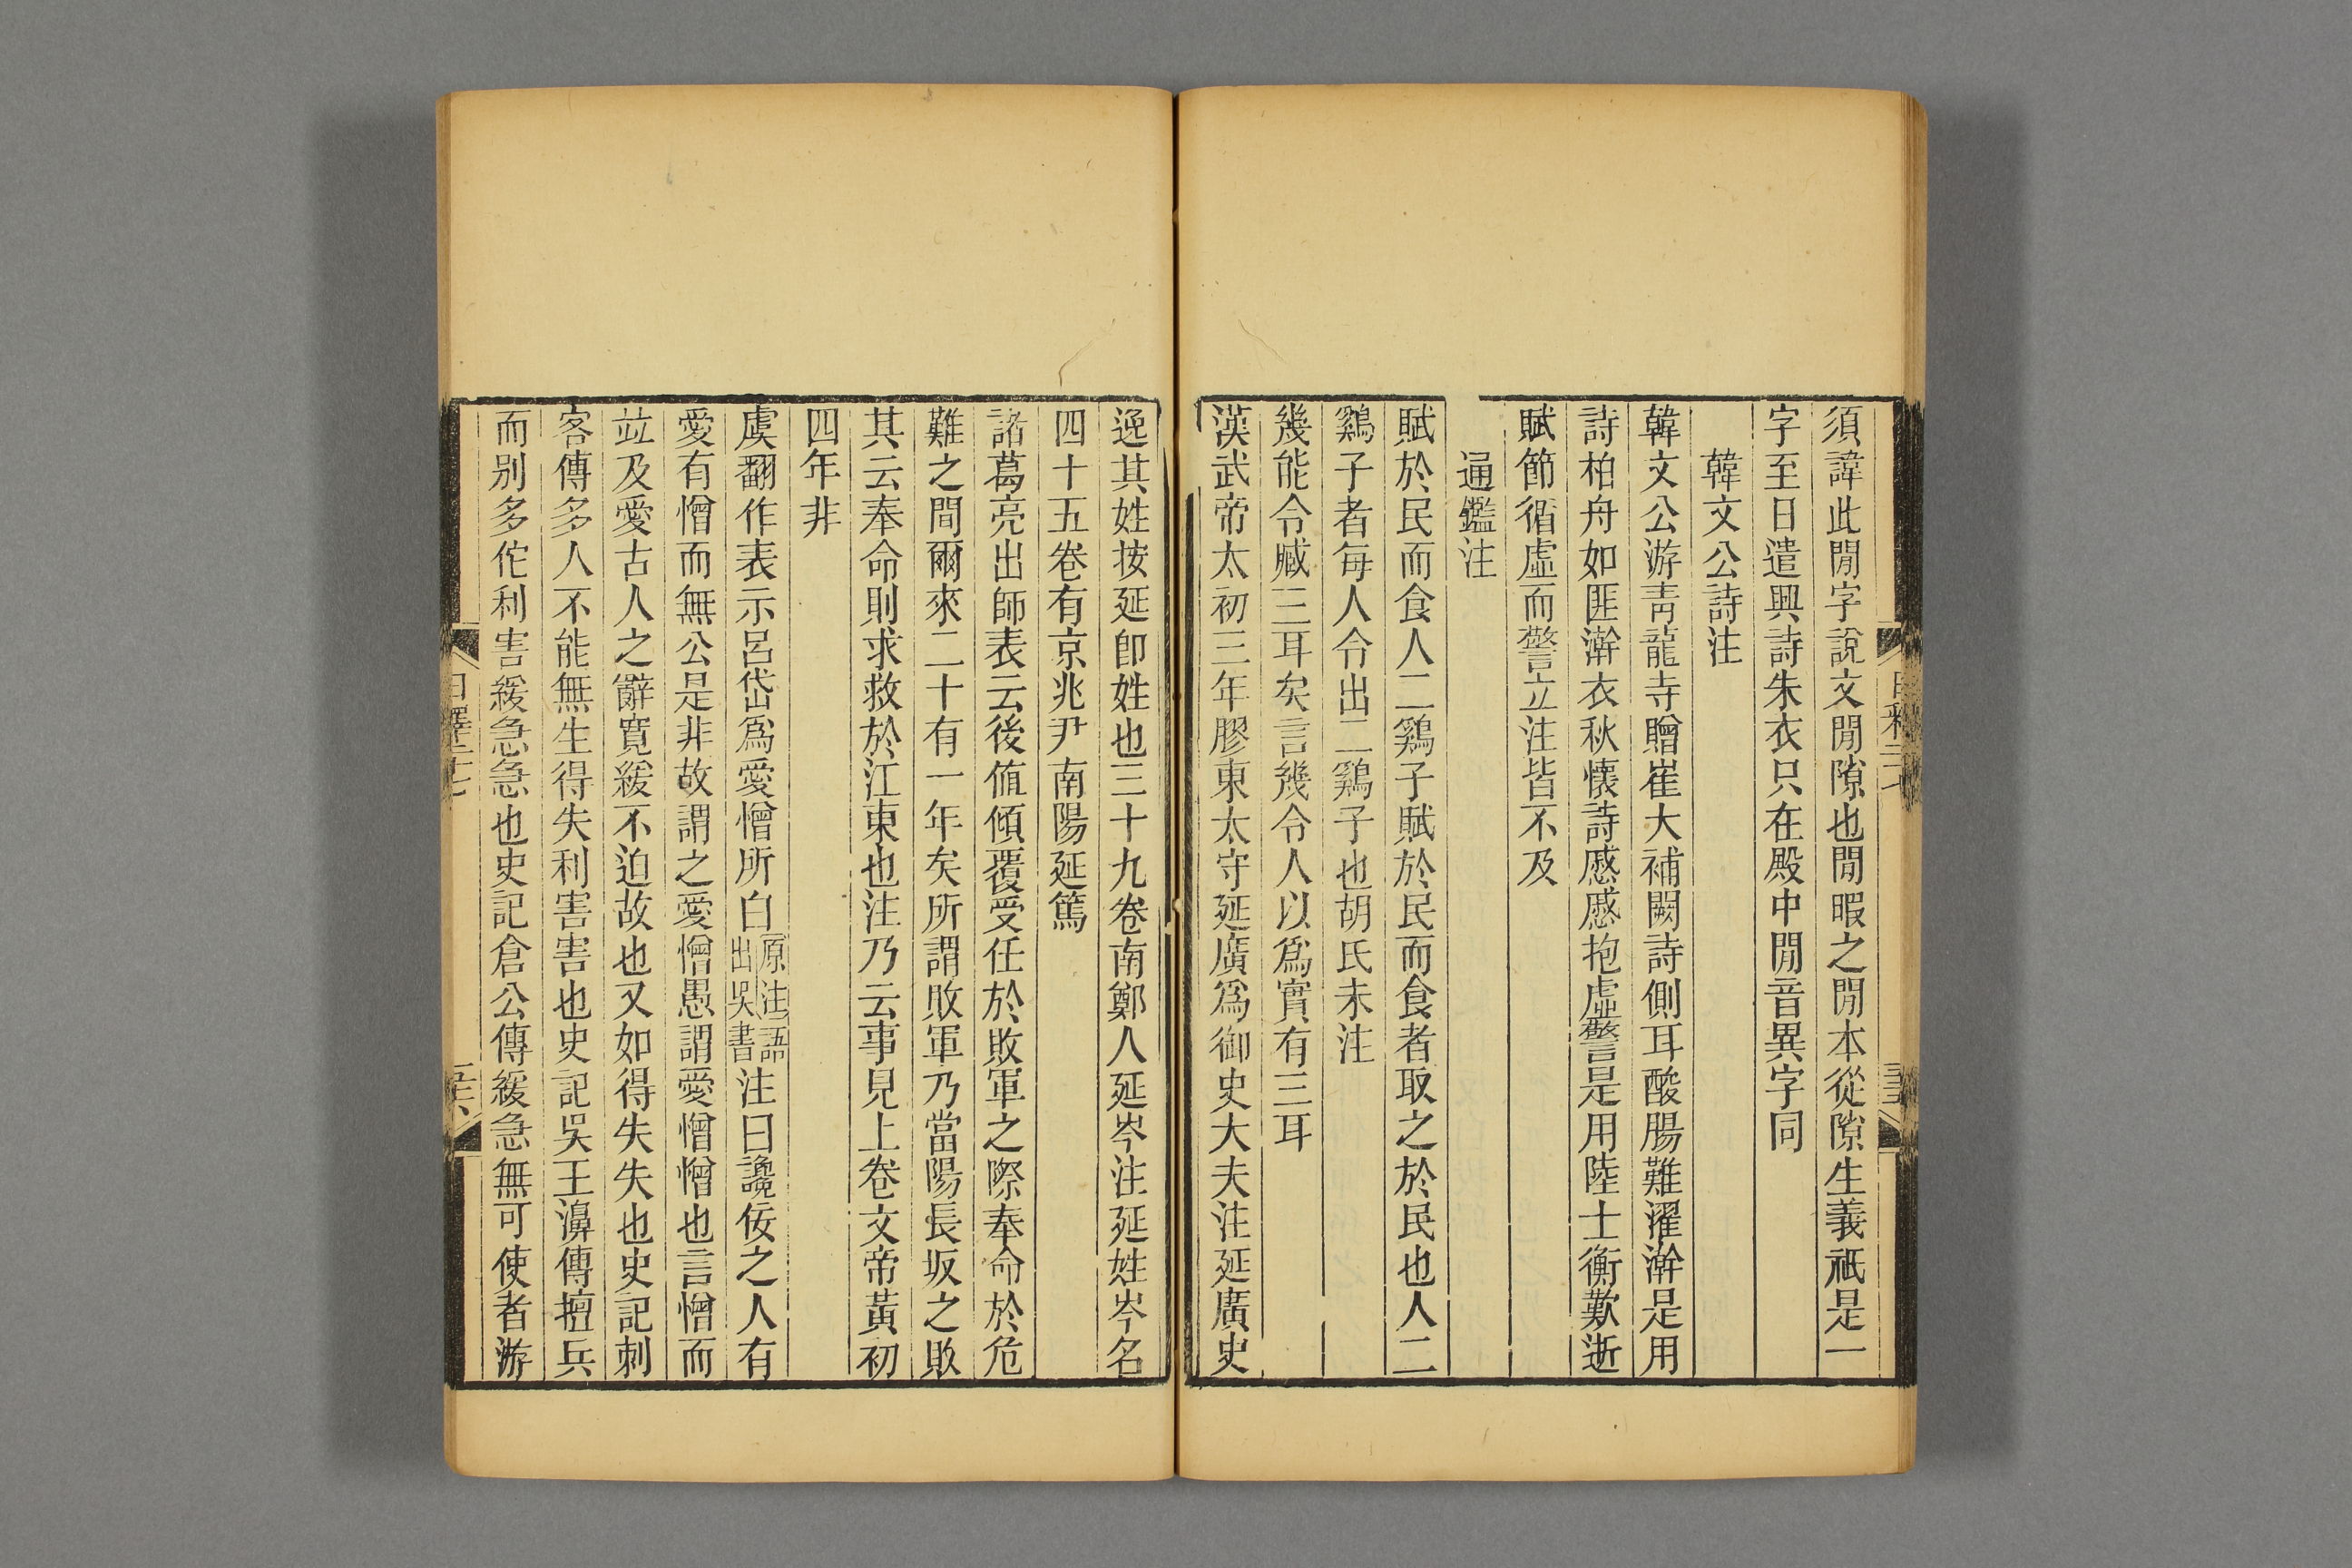 須諱此閒字說文閒隙也閒暇之閒本從隙生義祇是一
字至日遣興詩朱衣只在殿中閒音異字同
韓文公詩注
韓文公游青龍寺贈崔大補闕詩側耳酸腸難濯澣是用
詩柏舟如匪澣衣秋懷詩慼慼抱虛警是用陸士衡歎逝
賦節循虛而警立注皆不及
通鑑注
賦於民而食人二鷄子賦於民而食者取之於民也人二
鷄子者每人令出二鷄子也胡氏未注
幾能令臧三耳矣言幾令人以爲實有三耳
漢武帝太初三年膠東太守延廣爲御史大夫注延廣史
逸其姓按延卽姓也三十九卷南鄭人延岑注延姓岑名
四十五卷有京兆尹南陽延篤
諸葛亮出師表云後値傾覆受任於敗軍之際奉命於危
難之間爾來二十有一年矣所謂敗軍乃當陽長坂之敗
其云奉命則求救於江東也注乃云事見上卷文帝黃初
四年非
虞翻作表示呂岱爲愛憎所白原注語出吳書注曰讒佞之人有
愛有憎而無公是非故謂之愛憎愚謂愛憎憎也言憎而
竝及愛古人之辭寬緩不迫故也又如得失失也史記刺
客傳多人不能無生得失利害害也史記吳王濞傳擅兵
而别多佗利害緩急急也史記倉公傳緩急無可使者游